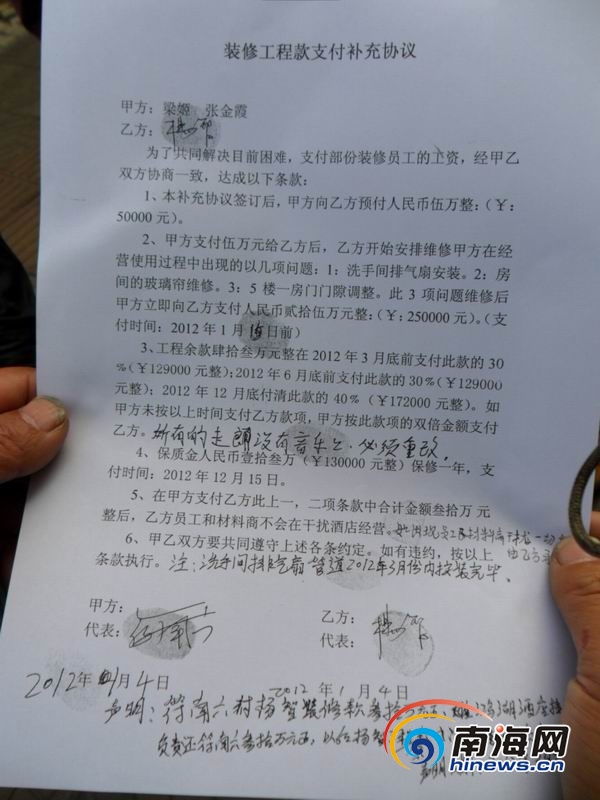 装修工程款支付补充协议
甲方：梁姬 张金霞
乙方：
为了共同解决目前困难，支付部份装修员工的工资，经甲乙
双方协商一致，达成以下条款：
1、本补充协议签订后，甲方向乙方预付人民币伍万整：（￥：
50000 元）。
2、甲方支付伍万元给乙方后，乙方开始安排维修甲方在经
营使用过程中出现的以几项问题：1：洗手间排气扇安装。2：房
间的玻璃帘维修。3：5 楼一房门门隙调整。此 3 项问题维修后
甲方立即向乙方支付人民币贰拾伍万元整：（￥：250000 元）。（支
付时间：2012 年 1 月 15 日前）
3、工程余款肆拾叁万元整在 2012 年 3 月底前支付此款的 30
%（￥129000 元整）；2012 年 6 月底前支付此款的 30%（￥129000
元整）；2012 年 12 月底付清此款的 40%（￥172000 元整）。如
甲方未按以上时间支付乙方款项，甲方按此款项的双倍金额支付
乙方。所有的走廊没有音乐，必须重改。
4、保质金人民币壹拾叁万（￥130000 元整）保修一年，支
付时间：2012 年 12 月 15 日。
5、在甲方支付乙方此上一，二项条款中合计金额叁拾万 元
整后，乙方员工和材料商不会在干扰酒店经营。如出现员工及材料商
6、甲乙双方要共同遵守上述各条约定。如有违约，按以上 由乙方
条款执行。注：洗手间排气扇管道2012年3月份内按装完毕。
甲方： 乙方：
代表： 代表：
2012年 1月4日 2012 年 1 月 4 日
声明：符南六村杨智装修款叁拾万元
负责还符南六叁拾万元
南海网
hinews.cn